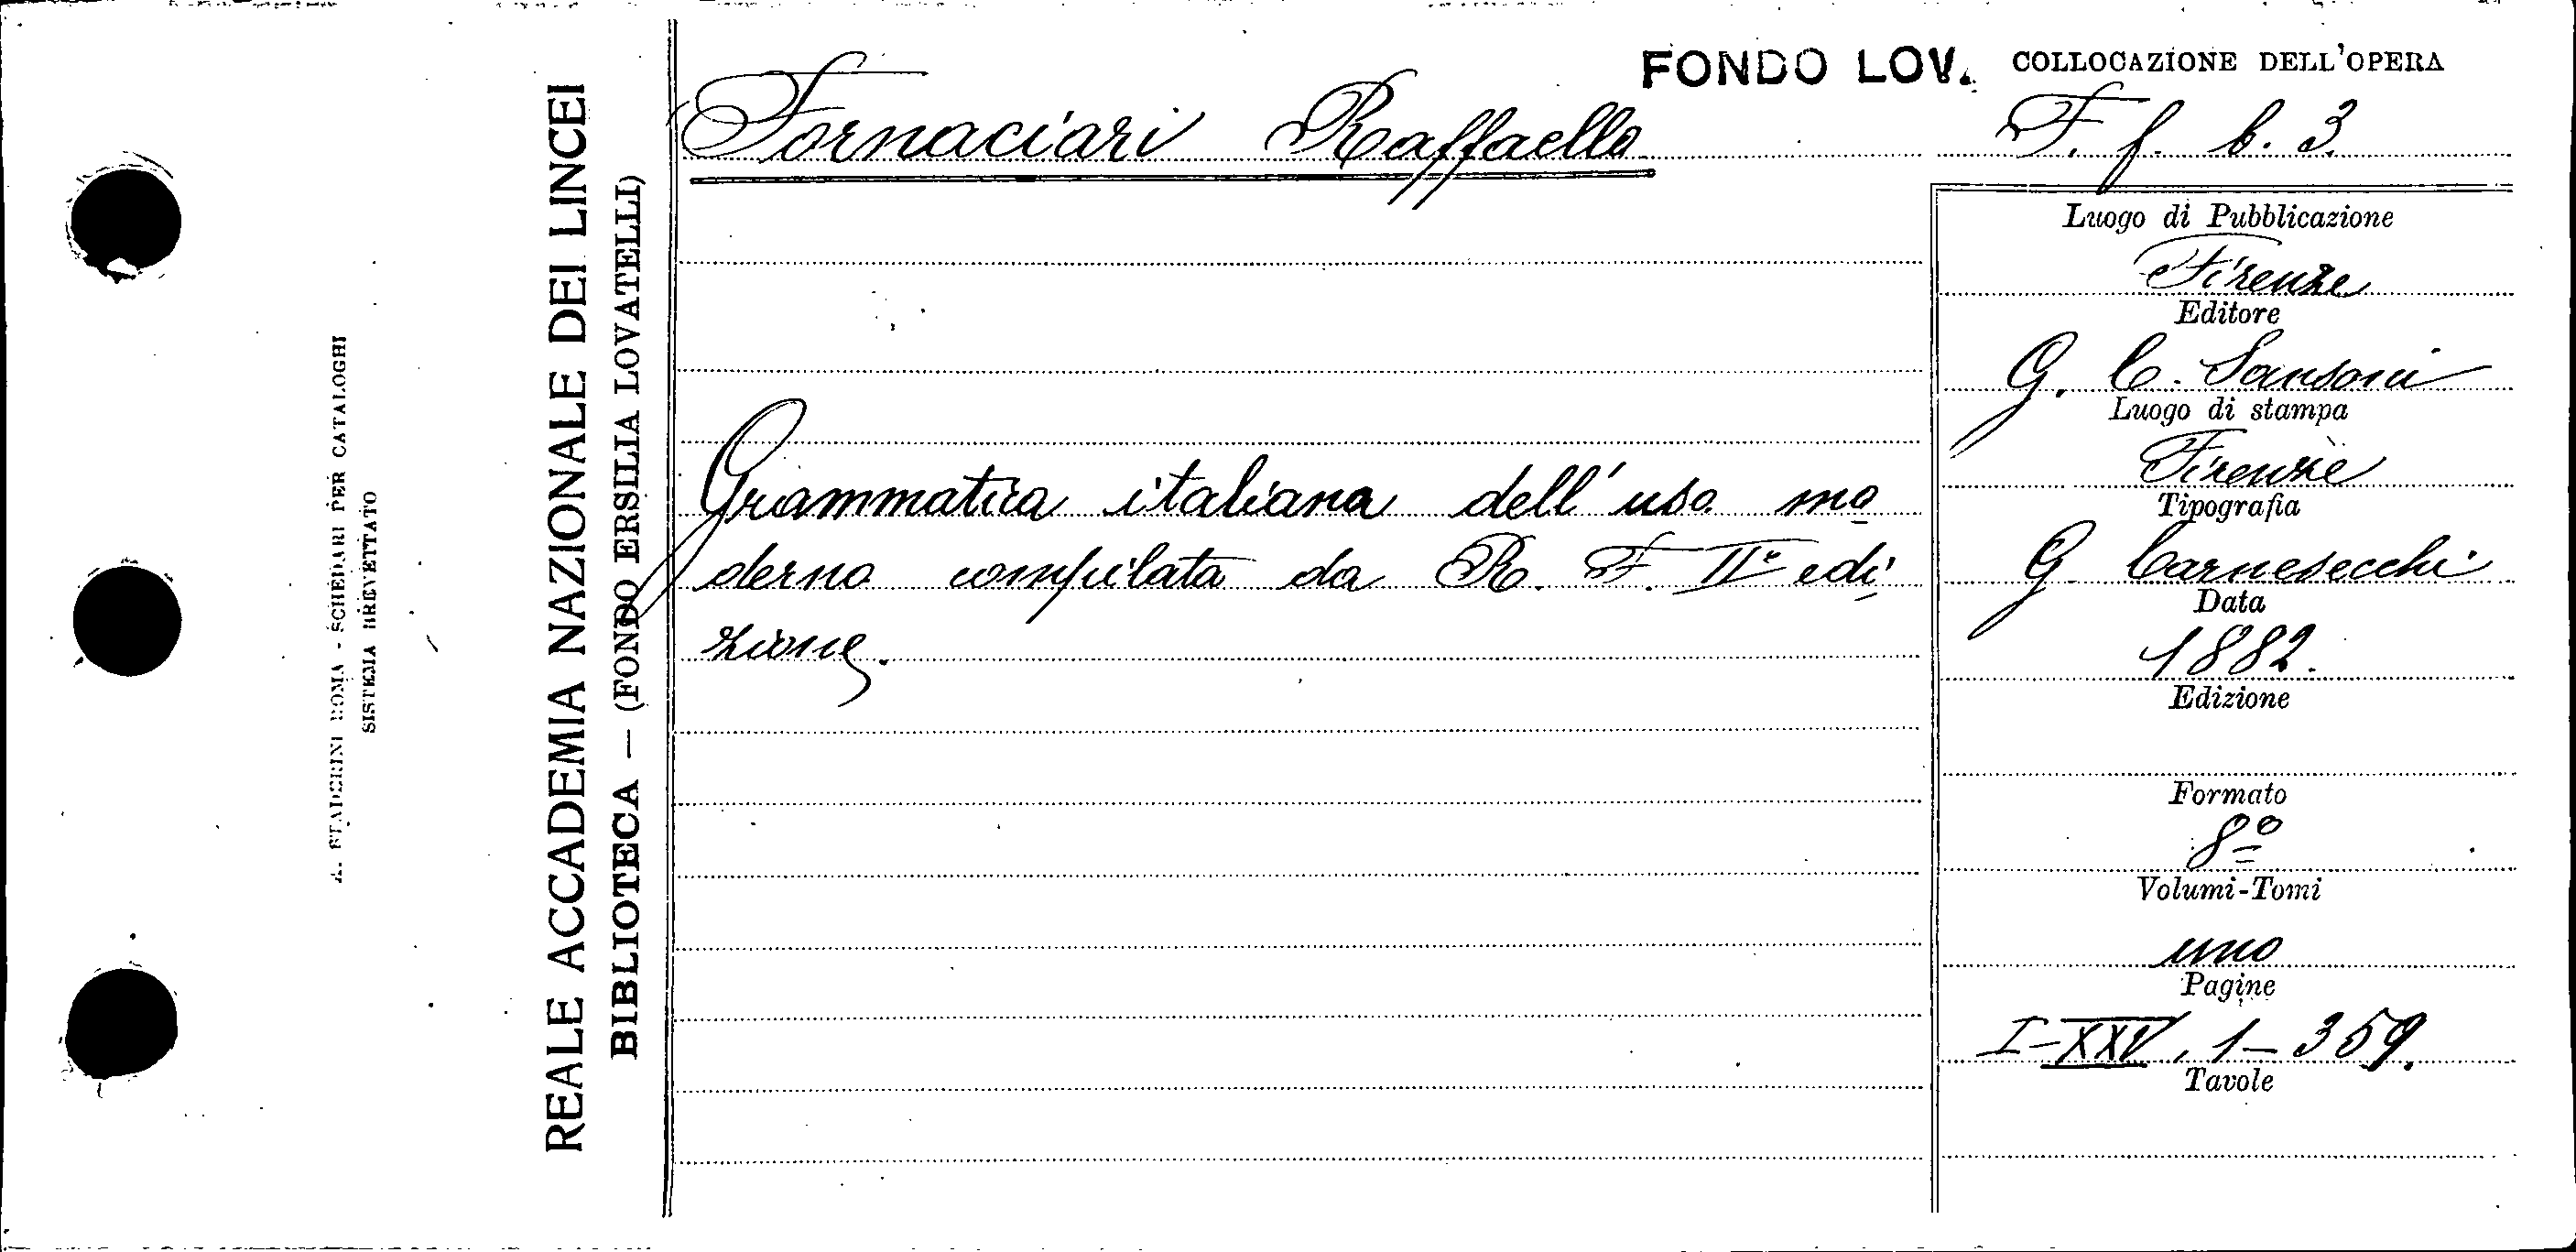 A. STADERINI ROMA - SCHEDARI PER CATALOGHI
SISTEMA BREVETTATO
REALE ACCADEMIA NAZIONALE DEI LINCEI
BIBLIOTECA — (FONDO ERSILIA LOVATELLI)
FONDO LOV.
Fornaciari Raffaello
Grammatica italiana dell'uso mo
derno compilata da R. F. IIª edi
zione.
COLLOCAZIONE DELL'OPERA
F. f. b. 3.
Luogo di Pubblicazione
Firenze
Editore
G. C. Sansoni
Luogo di stampa
Firenze
Tipografia
G. Carnesecchi
Data
1882.
Edizione
Formato
8º
Volumi-Tomi
uno
Pagine
I-XXV, 1-359.
Tavole